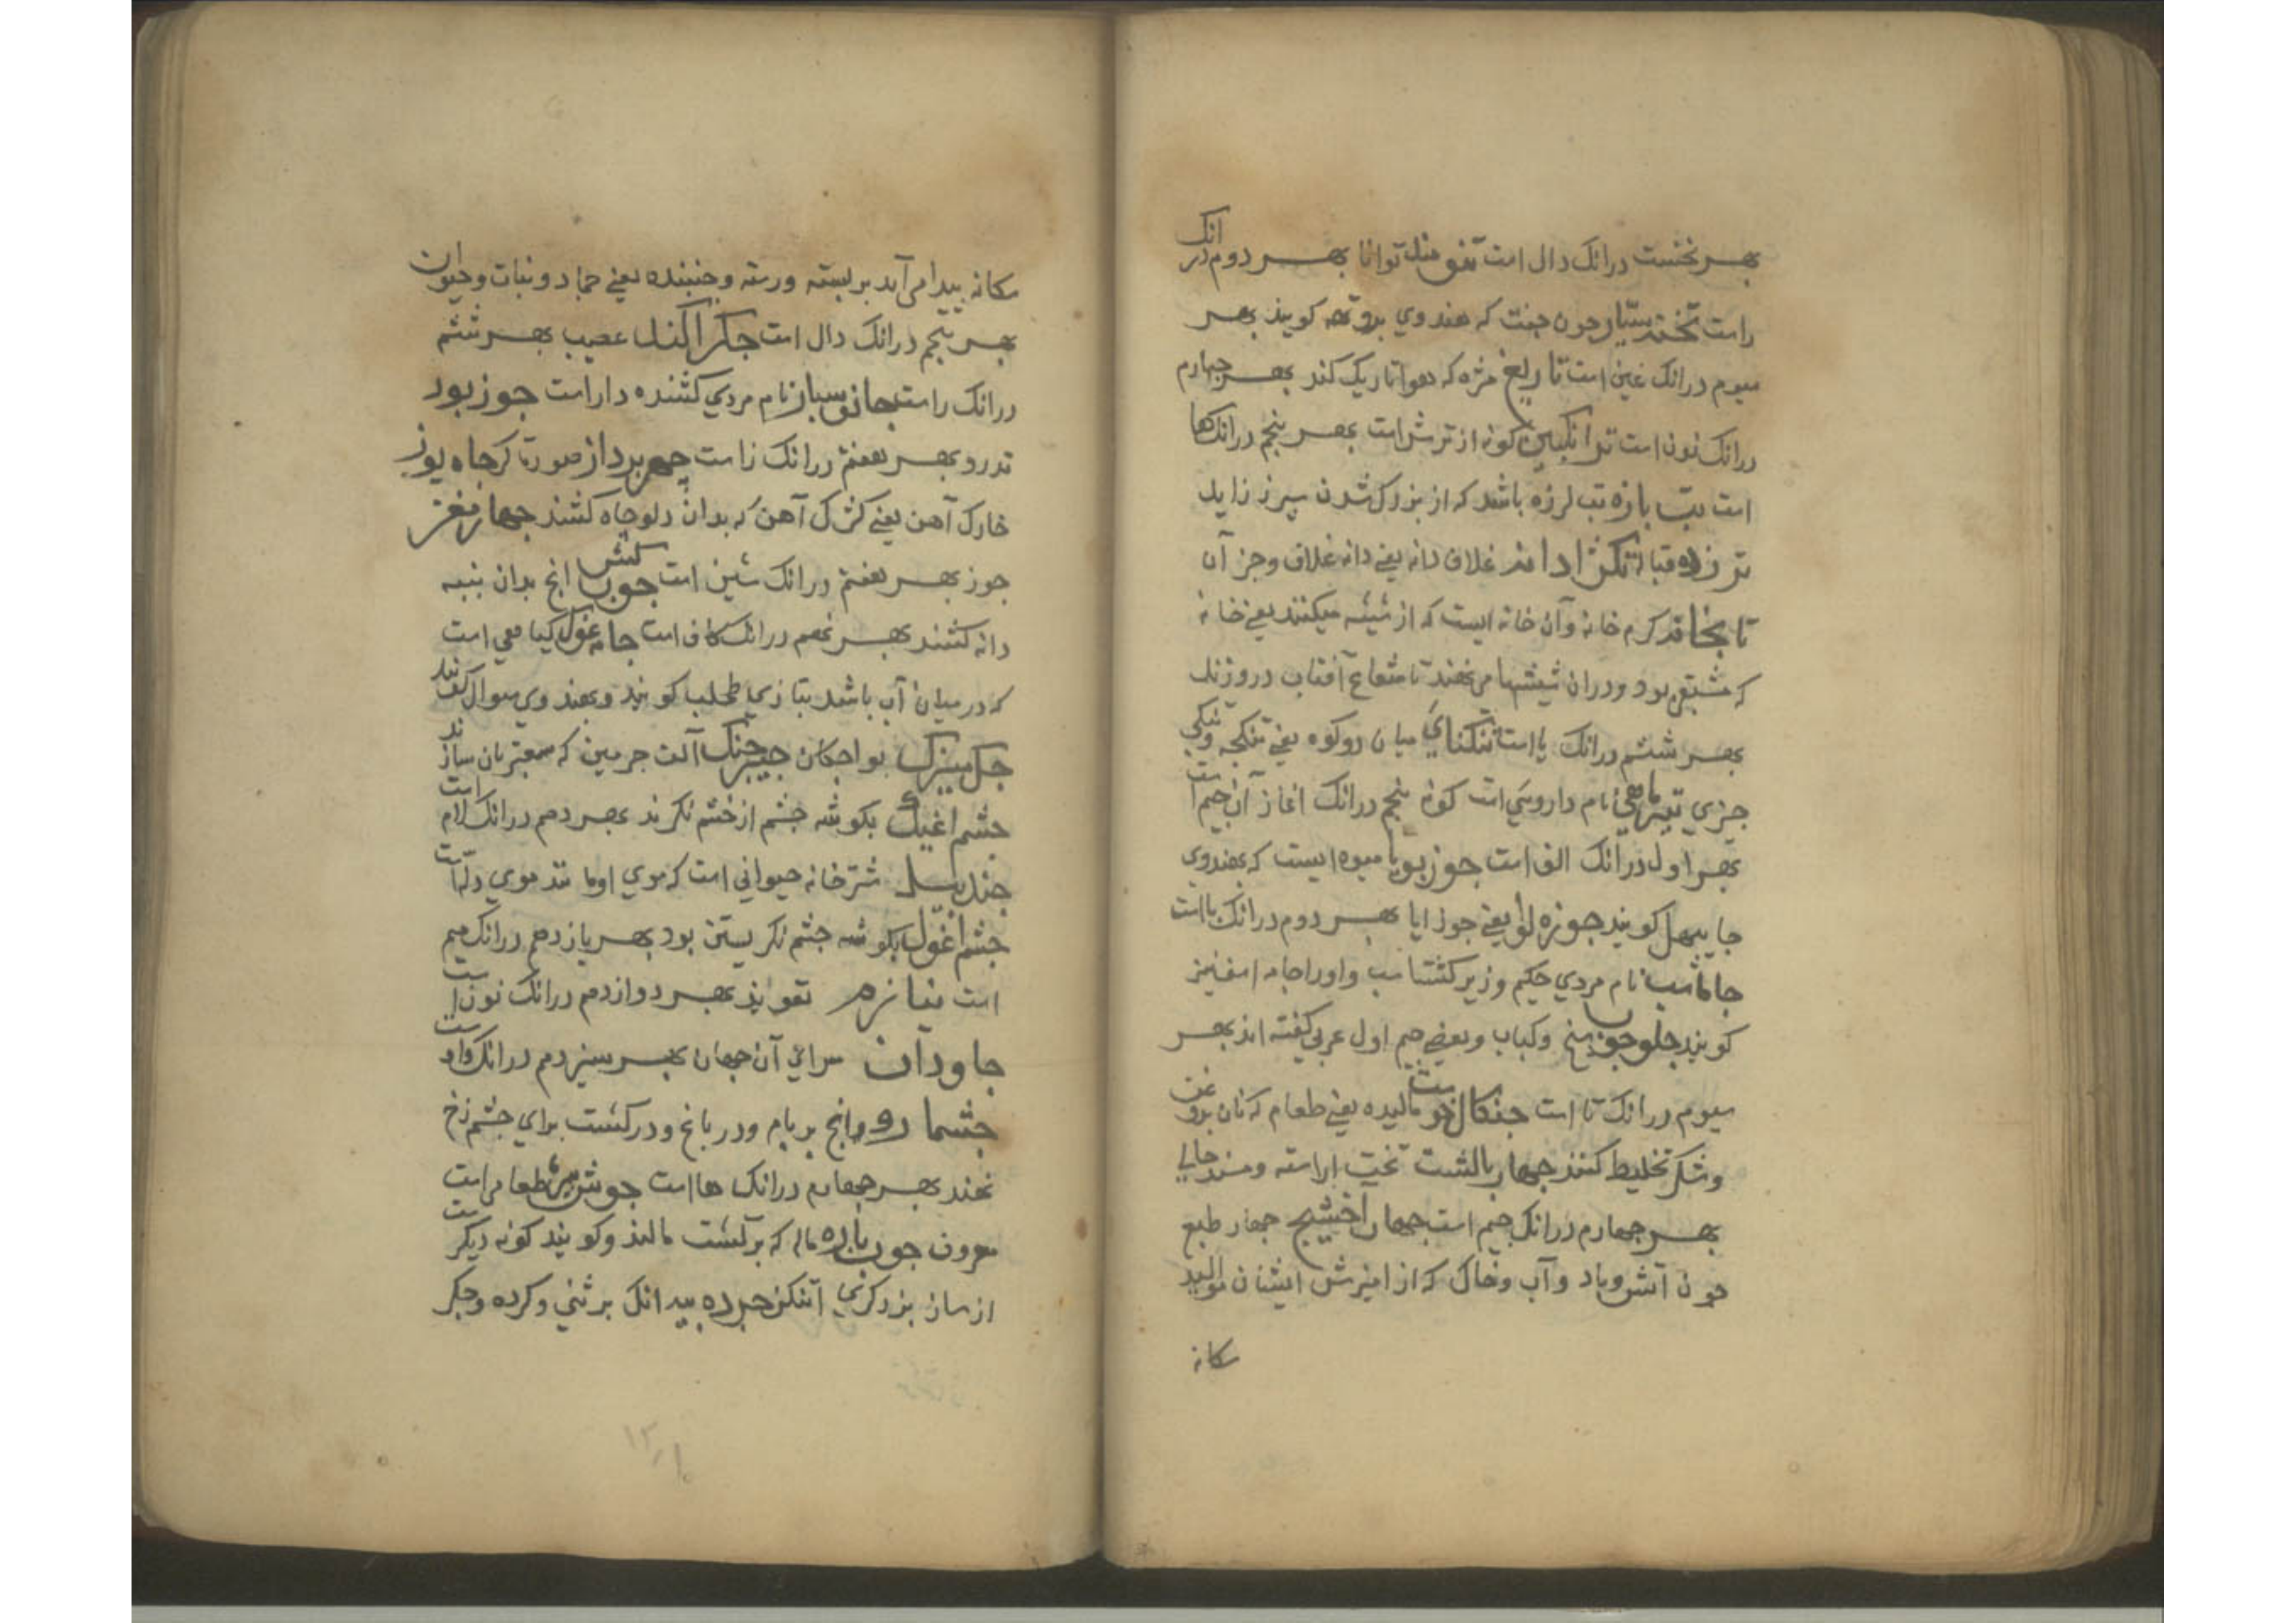 بهر نخست درانک دال است تنومند توانا بهر دوم درانک
راست تختدستیار چون جفت که هندوی گویند بهر
سیوم درانک غین است تاریغ مژه که هوا تاریک کند بهر چهارم
درانک نون است ترانکبین کونه از ترش است بهر پنجم درانک ها
است تب بازه تب لرزه باشد که از بزرک شدن سپرز زاید
ترزده قباله تکژادانه غلاف دانه یعنی دانه غلاف وجز آن
تابخانه کرم خانه وآن خانه ایست که از شیشه میکنند یعنی خانه
که مشبق بود ودران شیشها می نهند تا شعاع آفتاب در وزند
بهر ششم درانک یا است تنکنای میان دو کوه یعنی تنکجه وتنکی
جیزی تیرماهی نام داروئی است کونه پنجم درانک اغاز آن جیم است
بهر اول درانک الف است جوز بویا میوه ایست که بهندوی
جایپهل کویند جوزه لوا یعنی جوز ابا بهر دوم درانک با است
جاماسب نام مردی حکیم وزیر کشتاسب واورا جاماسف نیز
کویند جلوجوب سیخ وکباب وبعضی جیم اول عربی کفته اند بهر
سیوم درانک تا است جنکال خوست مالیده یعنی طعام که نان بروغن
وشکر تخلیط کنند جهار بالشت تخت اراسته ومسند حالی
بهر جهارم درانک جیم است جهار اخشیج جهار طبع
جون آتش وباد وآب وخاک که از امیزش ایشان موالید
سکانه
سکانه پیدا می آید بربسته ورسته وجنبنده یعنی جماد ونبات وحیوان
بهر پنجم درانک دال است جکراکند عصیب بهر ششم
درانک راست جانوسیار نام مردی کشنده داراست جوزبور
تدرو بهر هفتم درانک زا است جهربرداز صورتکر جاه یوز
خارک آهن یعنی کژک آهن که بدان دلو جاه کشند جهارمغز
جوز بهر هفتم درانک شین است جوبکش انج بدان پنبه
دانه کشند بهر نهم درانک کاف است جامه غوک کیاهی است
که در میان آب باشد بتازی طحلب کویند وبهندوی سوال کویند
جکمیزک بواجکان جنک آلت جرمین که معتبران سازند
جشم اغیل بکوشه جشم از خشم نکرند بهر دهم درانک لام است
جندبیل شترخانه حیوانی است که موی او مانند موی دله است
جشم اغول بکوشه جشم نکریستن بود بهر یازدهم درانک میم
است تعویذ بهر دوازدهم درانک نون است
جاودان سرای آن جهان بهر سیزدهم درانک واو است
جشمارو انج بر بام ودر باغ ودر کشت برای جشم زخ
نهند بهر جهاردهم درانک ها است جوش بره طعامی است
معروف جوب بازه ماله که بر کشت مالند وکویند کونه دیکر است
از ساز بزرکری آشکر جرده بید انک بر وکرده وجکر